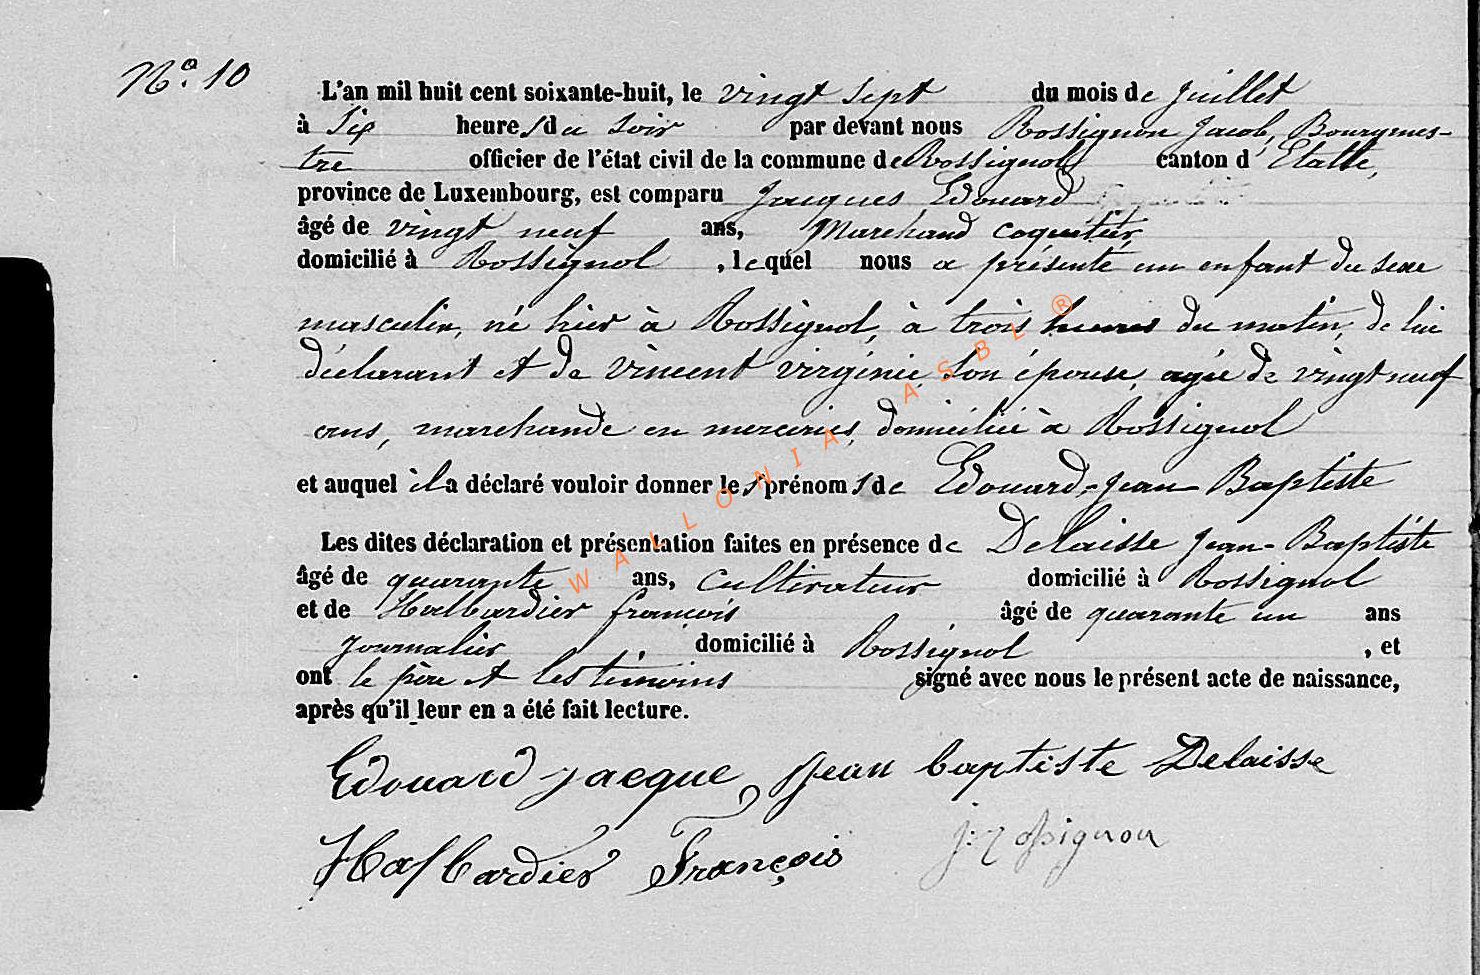 Nº. 10
L'an mil huit cent soixante-huit, le vingt sept du mois de juillet
à six heures du soir par devant nous Rossignon Jacob, Bourgmes-
tre officier de l'état civil de la commune de Rossignol canton d'Etalle,
province de Luxembourg, est comparu Jacques Edouard
âgé de vingt neuf ans, Marchand coquetier
domicilié à Rossignol, lequel nous a présenté un enfant du sexe
masculin, né hier à Rossignol, à trois heures du matin, de lui
déclarant et de Vincent Virginie, son épouse, agée de vingt neuf
ans, marchande en merceries, domiciliée à Rossignol
et auquel il a déclaré vouloir donner les prénoms de Edouard-Jean-Baptiste
Les dites déclaration et présentation faites en présence de Delaisse Jean-Baptiste
âgé de quarante ans, cultivateur domicilié à Rossignol
et de Halbardier françois âgé de quarante un ans
journalier domicilié à Rossignol, et
ont le père et les témoins signé avec nous le présent acte de naissance,
après qu'il leur en a été fait lecture.
Edouard jacque Jean baptiste Delaisse
Halbardier François j: rossignon
WALLONIA ASBL ®